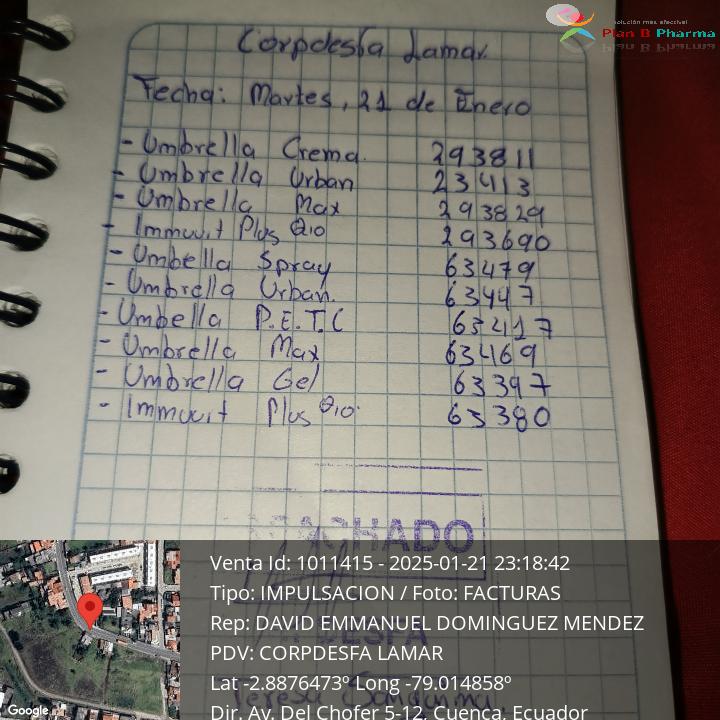 solución más efectiva!
Plan B Pharma
Corpdesfa Lamar.
Fecha: Martes, 21 de Enero
- Umbrella Crema. 293811
- Umbrella Urban 23413
- Umbrella Max 293829
- Immuvit Plus Q10 293690
- Umbella Spray 63479
- Umbrella Urban. 63447
- Umbella P.E.T.C 63417
- Umbrella Max 63469
- Umbrella Gel 63397
- Immuvit Plus Q10. 63380
MACHADO
Venta Id: 1011415 - 2025-01-21 23:18:42
Tipo: IMPULSACION / Foto: FACTURAS
Rep: DAVID EMMANUEL DOMINGUEZ MENDEZ
PDV: CORPDESFA LAMAR
Lat -2.8876473º Long -79.014858º
Dir. Av. Del Chofer 5-12, Cuenca, Ecuador
Google